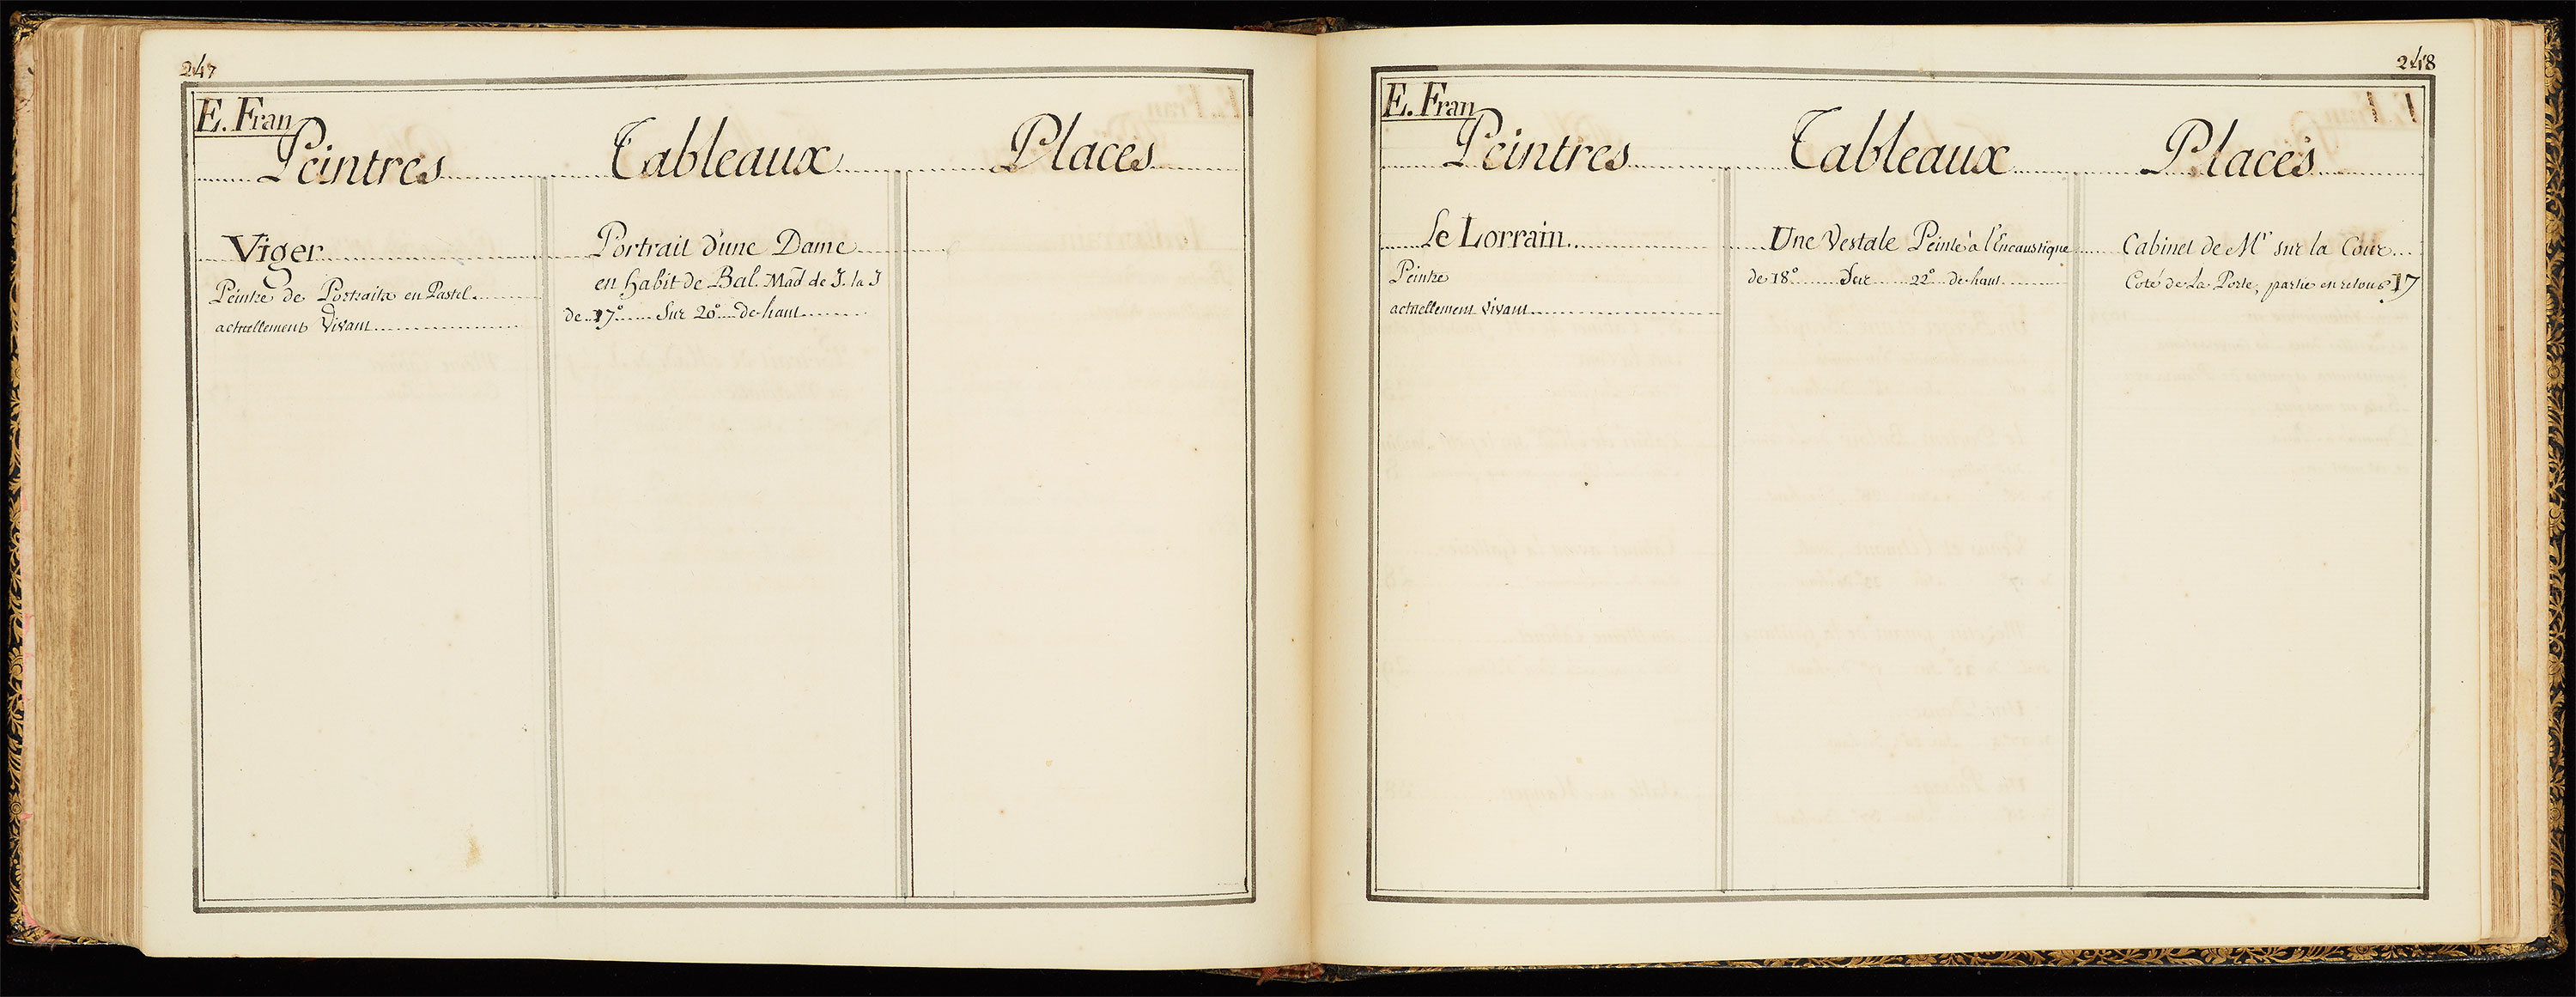 247
E. Fran
Peintres Tableaux Places
Viger Portrait d'une Dame
Peintre de Portraits en Pastel. en habit de Bal. Mad de J. la J
actuellement Vivant de 17° Sur 20° de haut
248
E. Fran
Peintres Tableaux Places
Le Lorrain Une Vestale Peinte à l'Encaustique Cabinet de Mr sur la Cour
Peintre de 18° Sur 22° de haut Coté de La Porte, partie en retour 17
actuellement vivant